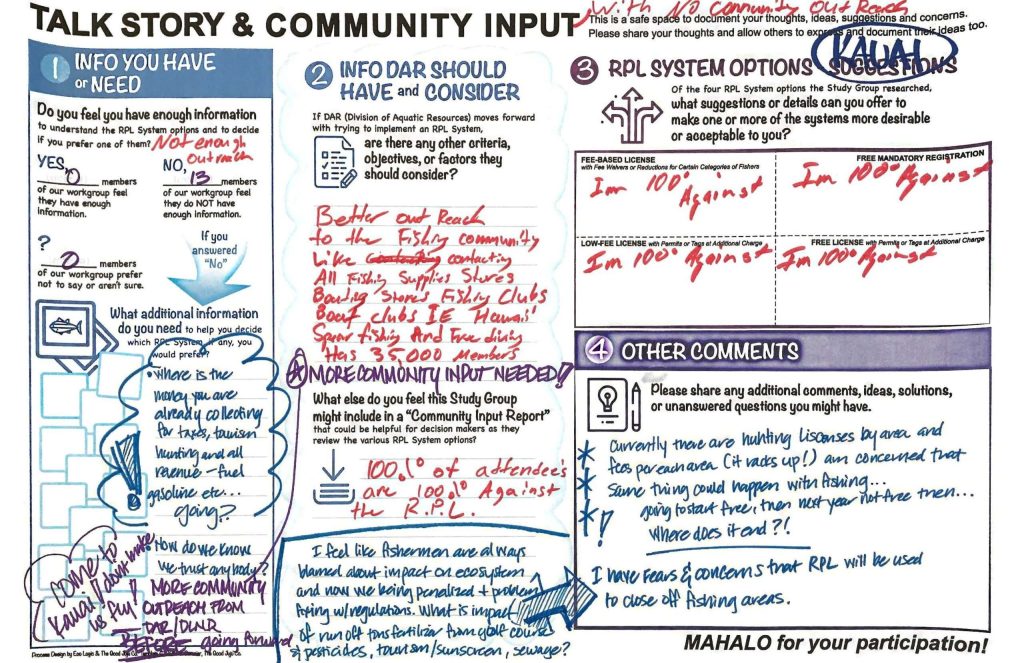 TALK STORY & COMMUNITY INPUT
With No Community Out Reach
This is a safe space to document your thoughts, ideas, suggestions and concerns.
Please share your thoughts and allow others to express and document their ideas too.
KAUAI
1 INFO YOU HAVE
or NEED
Do you feel you have enough information
to understand the RPL System options and to decide
if you prefer one of them?
Not enough
outreach
YES, 0 members
of our workgroup feel
they have enough
information.
NO, 13 members
of our workgroup feel
they do NOT have
enough information.
?
0 members
of our workgroup prefer
not to say or aren't sure.
If you
answered
"No"
What additional information
do you need to help you decide
which RPL System, if any, you
would prefer?
• Where is the
money you are
already collecting
for taxes, tourism
hunting and all
revenue - fuel
gasoline etc...
going?
!
• How do we know
we trust any body?
MORE COMMUNITY
OUTREACH FROM
DAR/DLNR
BEFORE going forward
Come to
Kauai / dont make
us fly!
Process Design by
The Good Jujo Co.
2 INFO DAR SHOULD
HAVE and CONSIDER
If DAR (Division of Aquatic Resources) moves forward
with trying to implement an RPL System,
are there any other criteria,
objectives, or factors they
should consider?
Better out Reach
to the Fishing community
Like contacting contacting
All Fishing Supplies Stores
Boating Stores Fishing Clubs
Boat clubs IE Hawaii
Spear fishing And Free diving
Has 35,000 Members
MORE COMMUNITY INPUT NEEDED!!
What else do you feel this Study Group
might include in a "Community Input Report"
that could be helpful for decision makers as they
review the various RPL System options?
100.1° of attendee's
are 100.1° Against
the R.P.L.
I feel like fishermen are always
blamed about impact on ecosystem
and now we being penalized + problem
fixing w/regulations. What is impact
of run off tons fertilizer from golf course
& pesticides, tourism/sunscreen, sewage?
3 RPL SYSTEM OPTIONS SUGGESTIONS
Of the four RPL System options the Study Group researched,
what suggestions or details can you offer to
make one or more of the systems more desirable
or acceptable to you?
FEE-BASED LICENSE
with Fee Waivers or Reductions for Certain Categories of Fishers
Im 100° Against
FREE MANDATORY REGISTRATION
Im 100° Against
LOW-FEE LICENSE with Permits or Tags at Additional Charge
Im 100° Against
FREE LICENSE with Permits or Tags at Additional Charge
Im 100° Against
4 OTHER COMMENTS
Please share any additional comments, ideas, solutions,
or unanswered questions you might have.
* Currently there are hunting liscenses by area and
fees per each area (it racks up!) am concerned that
* same thing could happen with fishing...
*! going to start free, then next year not free then...
where does it end?!
I have fears & concerns that RPL will be used
to close off fishing areas.
MAHALO for your participation!